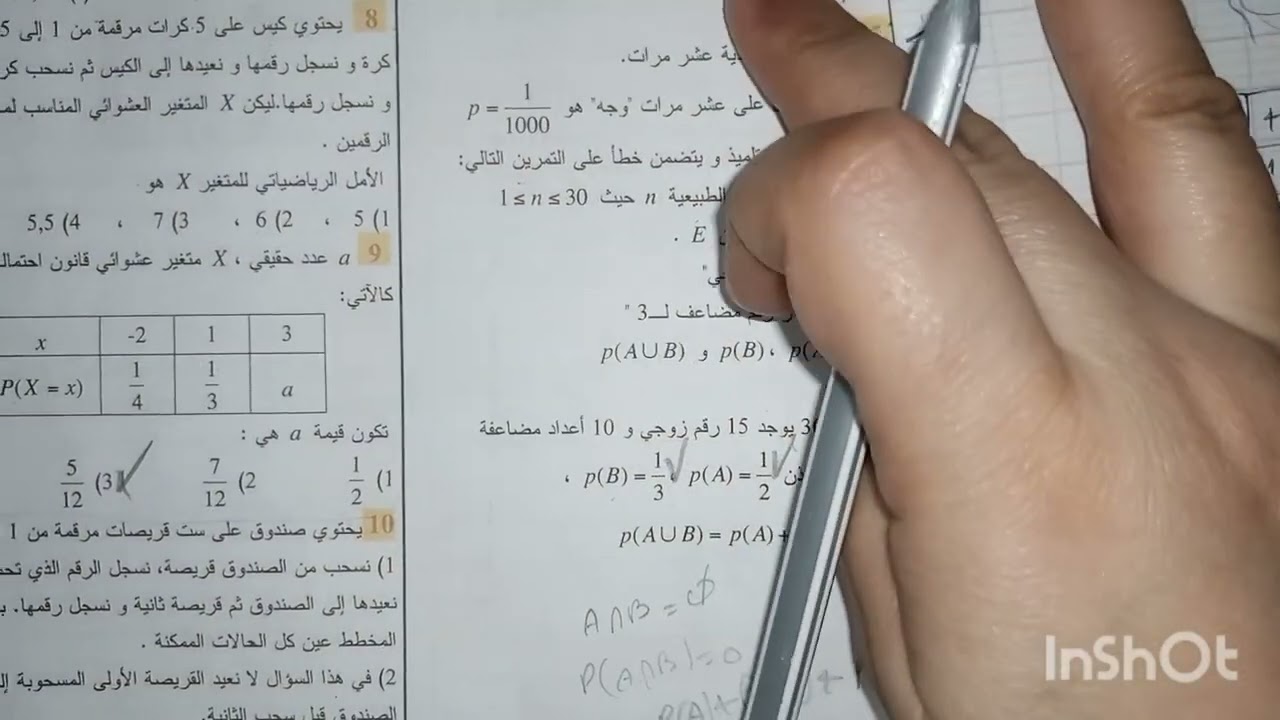 ية عشر مرات.
على عشر مرات "وجه" هو p = 1/1000
تلميذ و يتضمن خطأ على التمرين التالي:
الطبيعية n حيث 1 ≤ n ≤ 30
E .
مضاعف لـ 3 "
p(B) ، و p(A∪B)
يوجد 15 رقم زوجي و 10 أعداد مضاعفة
p(A) = 1/2 ، p(B) = 1/3 ،
p(A∪B) = p(A)+
A∩B = ϕ
P(A∩B) = 0
8 يحتوي كيس على 5 كرات مرقمة من 1 إلى 5
كرة و نسجل رقمها و نعيدها إلى الكيس ثم نسحب
و نسجل رقمها.ليكن X المتغير العشوائي المناسب
الرقمين .
الأمل الرياضياتي للمتغير X هو
1) 5 ، 2) 6 ، 3) 7 ، 4) 5,5
9 a عدد حقيقي ، X متغير عشوائي قانون
كالآتي:
x -2 1 3
P(X = x) 1/4 1/3 a
تكون قيمة a هي :
1) 1/2 2) 7/12 3) 5/12
10 يحتوي صندوق على ست قريصات مرقمة من 1
1) نسحب من الصندوق قريصة، نسجل الرقم الذي
نعيدها إلى الصندوق ثم قريصة ثانية و نسجل رقمها.
المخطط عين كل الحالات الممكنة .
2) في هذا السؤال لا نعيد القريصة الأولى المسحوبة
الصندوق قبل سحب الثانية.
InShOt